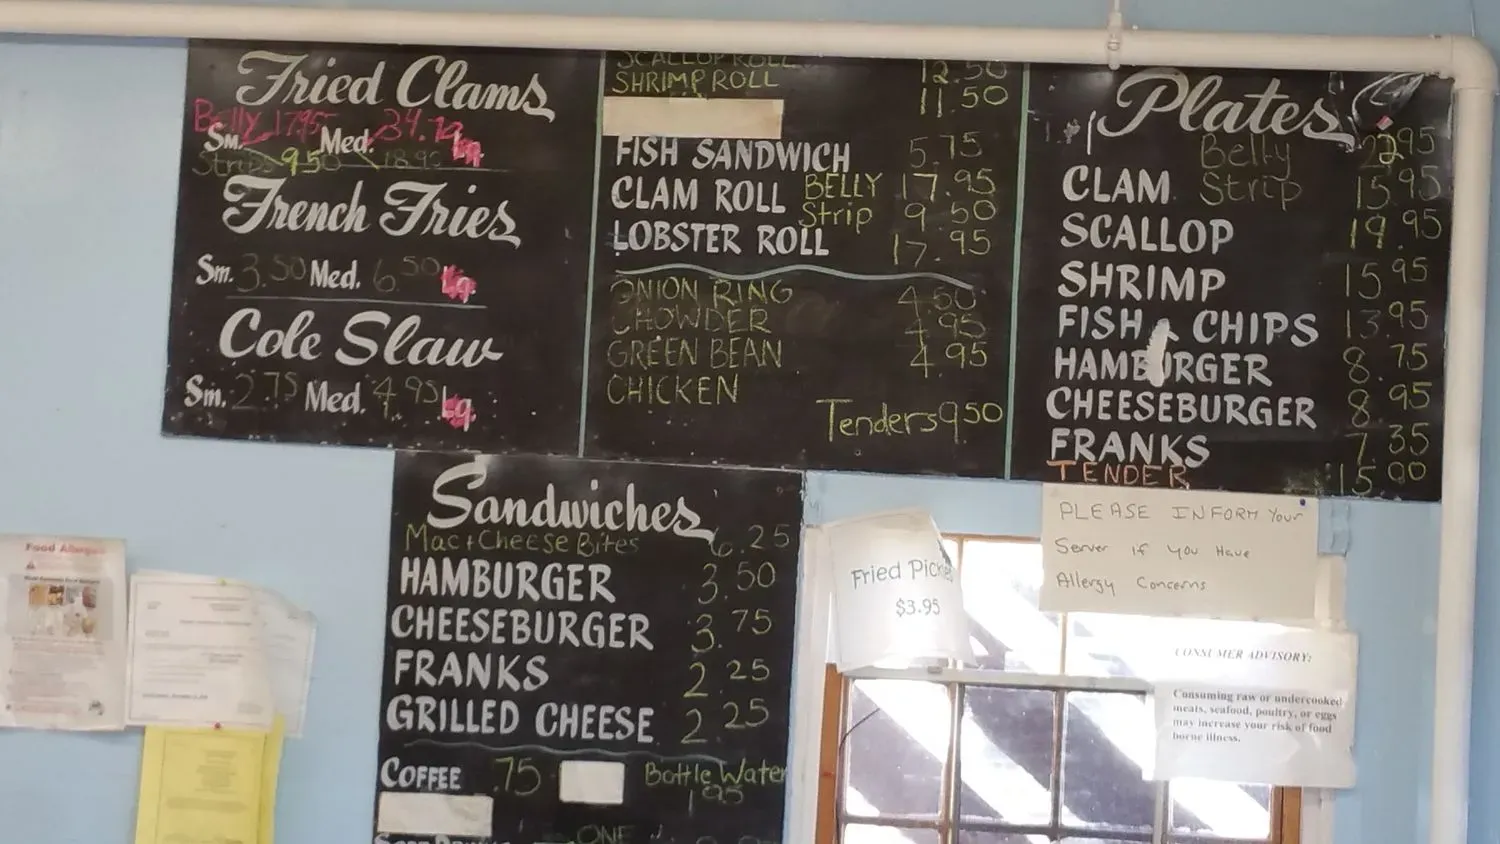 Fried Clams
Belly 17.95 34.
Sm. Med. Lg.
Strips 9.50 18.95
French Fries
Sm. 3.50 Med. 6.50 Lg.
Cole Slaw
Sm. 2.75 Med. 4.95 Lg.
SCALLOP ROLL 12.50
SHRIMP ROLL 11.50
FISH SANDWICH 5.75
CLAM ROLL BELLY 17.95
Strip 9.50
LOBSTER ROLL 17.95
ONION RING 4.50
CHOWDER 4.95
GREEN BEAN 4.95
CHICKEN
Tenders 9.50
Plates
Belly 22.95
CLAM Strip 15.95
SCALLOP 19.95
SHRIMP 15.95
FISH & CHIPS 13.95
HAMBURGER 8.75
CHEESEBURGER 8.95
FRANKS 7.35
TENDER 15.00
Sandwiches
Mac + Cheese Bites 6.25
HAMBURGER 3.50
CHEESEBURGER 3.75
FRANKS 2.25
GRILLED CHEESE 2.25
COFFEE .75 Bottle Water
1.95
ONE
Fried Pickle
$3.95
PLEASE INFORM Your
Server if you Have
Allergy Concerns
CONSUMER ADVISORY:
Consuming raw or undercooked
meats, seafood, poultry, or eggs
may increase your risk of food
borne illness.
Food Allergen